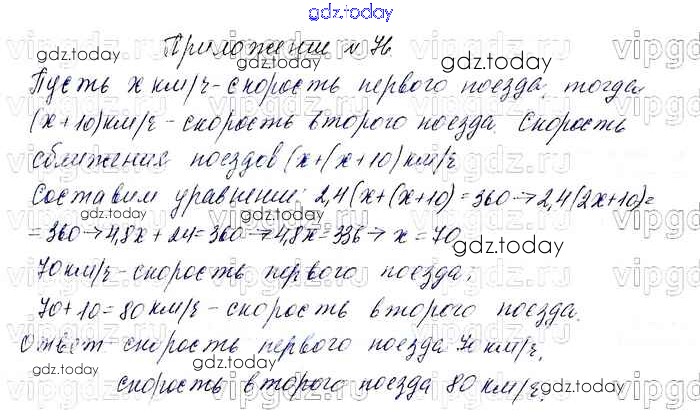 gdz.today
Приложение № 76
Пусть x км/ч - скорость первого поезда, тогда
(x+10) км/ч - скорость второго поезда. Скорость
сближения поездов (x+(x+10) км/ч
Составим уравнение: 2,4(x+(x+10)=360→2,4(2x+10)=
=360→4,8x+24=360→4,8x=336→x=70
70 км/ч - скорость первого поезда;
70+10=80 км/ч - скорость второго поезда.
Ответ: скорость первого поезда 70 км/ч,
скорость второго поезда 80 км/ч.